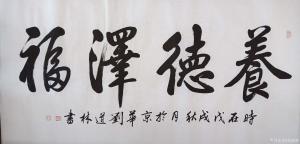 養德澤福
時在戊戌秋月於京華劉道林書